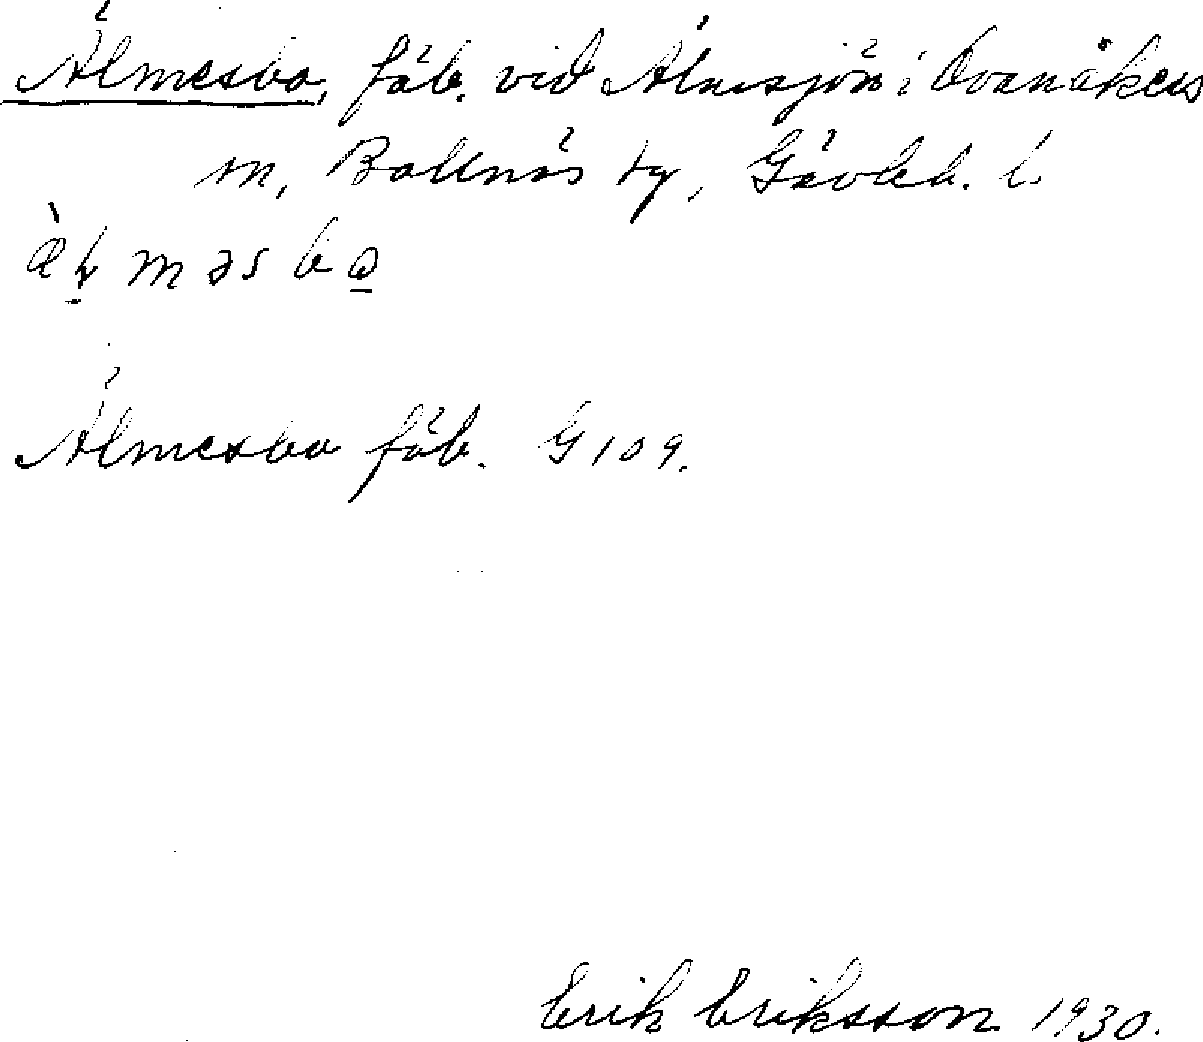 Älmesbo, fäb. vid Älmsjön i Ovanåkers
m, Bollnäs tg, Gävleb. l.
Älmesbo fäb. G 109.
Erik Eriksson 1930.